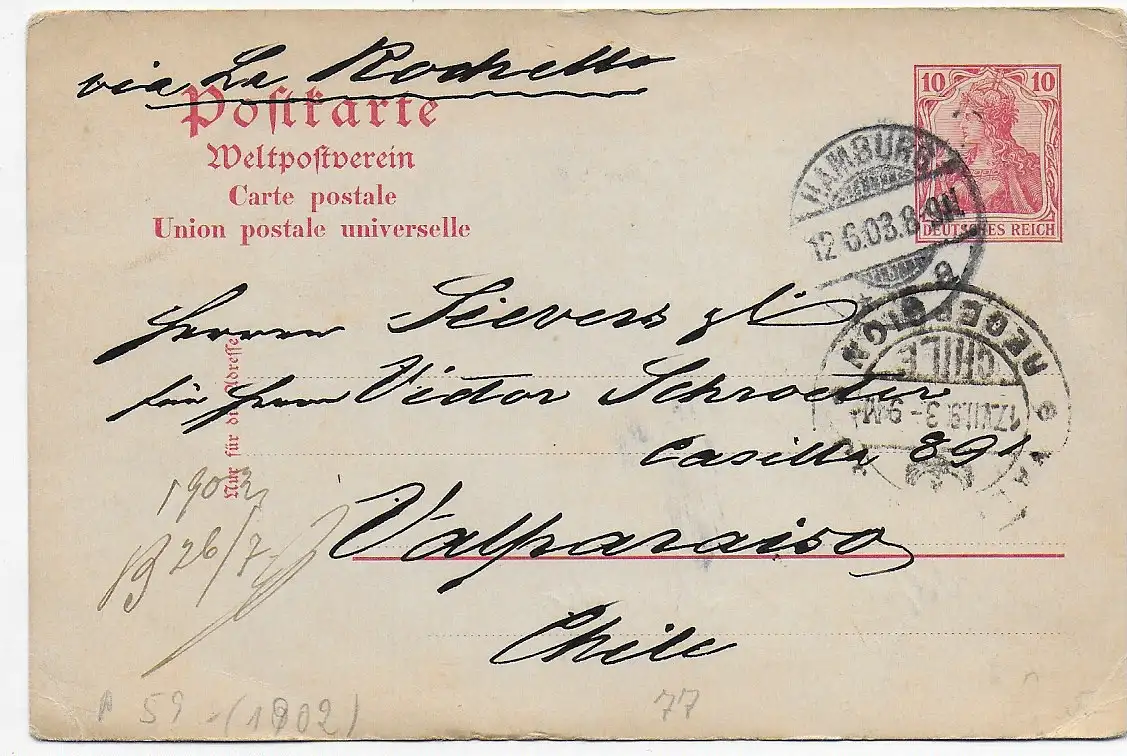 via La Rochelle
Postkarte
Weltpostverein
Carte postale
Union postale universelle
10 10
DEUTSCHES REICH
HAMBURG 1
12.6.03.8-9N.
a
CHILE
Herrn Sievers
für Herrn Victor Schroeter
Casilla 891
Valparaiso
Chile
Nur für die Adresse
26/7
P 59 - (1902)
77